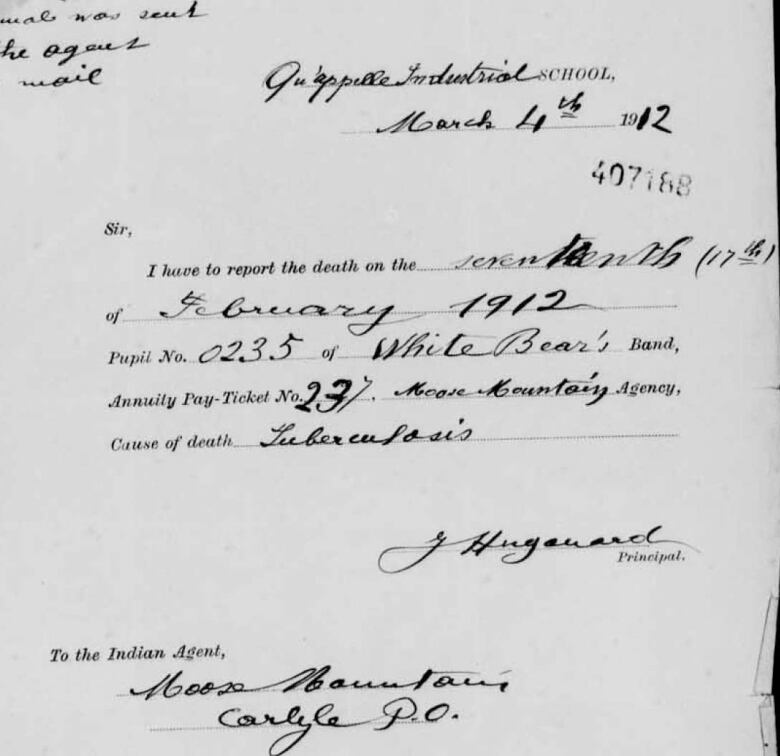 was sent
the agent
mail
Qu'appelle Industrial SCHOOL,
March 4th 1912
407188
Sir,
I have to report the death on the seventeenth (17th)
of February 1912
Pupil No. 0235 of White Bear's Band,
Annuity Pay-Ticket No. 237. Moose Mountain Agency,
Cause of death Tuberculosis
J Hugonard
Principal.
To the Indian Agent,
Moose Mountain
Carlyle P.O.